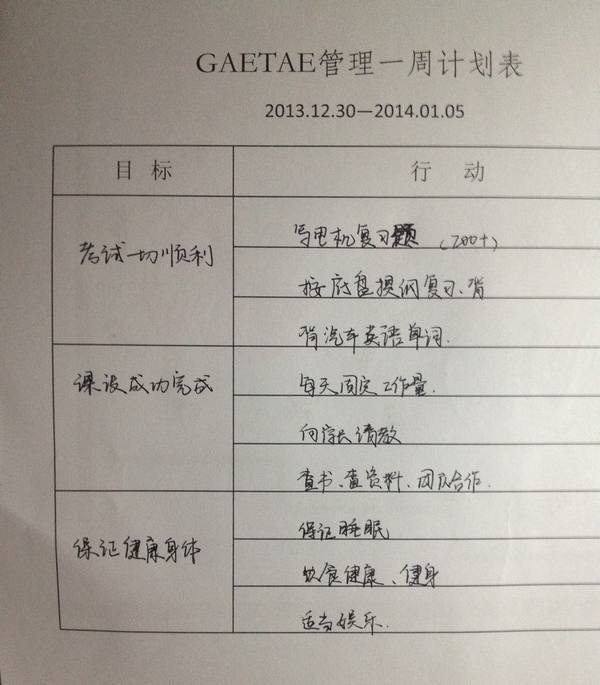 GAETAE管理一周计划表
2013.12.30—2014.01.05
目 标 行 动
写电机复习题 (200+)
考试一切顺利
按底盘提纲复习、背
背汽车英语单词.
课设成功完成 每天固定工作量.
向学长请教
查书、查资料、团队合作.
保证睡眠
保证健康身体
饮食健康、健身
适当娱乐.